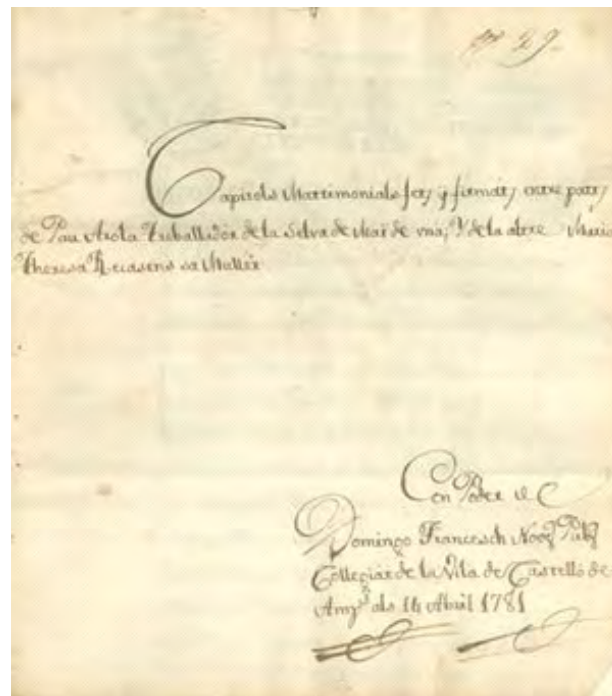 nº 29.
Capitols Matrimonials fets y firmats entre parts
de Pau Arola Traballador de la Selva de Mar de una; Y de la altre Maria
Theresa Recasens sa Muller
Con Poder de
Domingo Francesch Noq.
Collegiat de la Vila de Castelló de
Amp.s als 14 Abril 1781